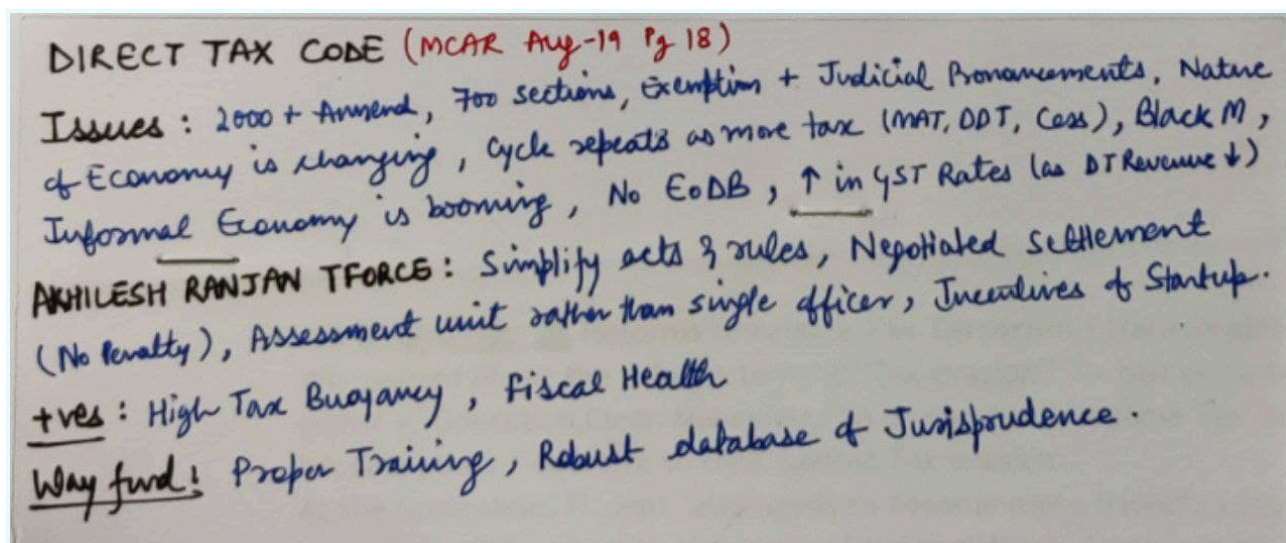 DIRECT TAX CODE (MCAR Aug-19 Pg 18)
Issues : 2000 + Ammend, 700 sections, Exemption + Judicial Pronouncements, Nature
of Economy is changing, Cycle repeats as more tax (MAT, DDT, Cess), Black M,
Informal Economy is booming, No EoDB, ↑ in GST Rates (as DT Revenue ↓)
AKHILESH RANJAN TFORCE : Simplify acts & rules, Negotiated Settlement
(No Penalty), Assessment unit rather than single officer, Incentives of Startup.
+ves : High Tax Buoyancy, Fiscal Health
Way fwd : Proper Training, Robust database of Jurisprudence.